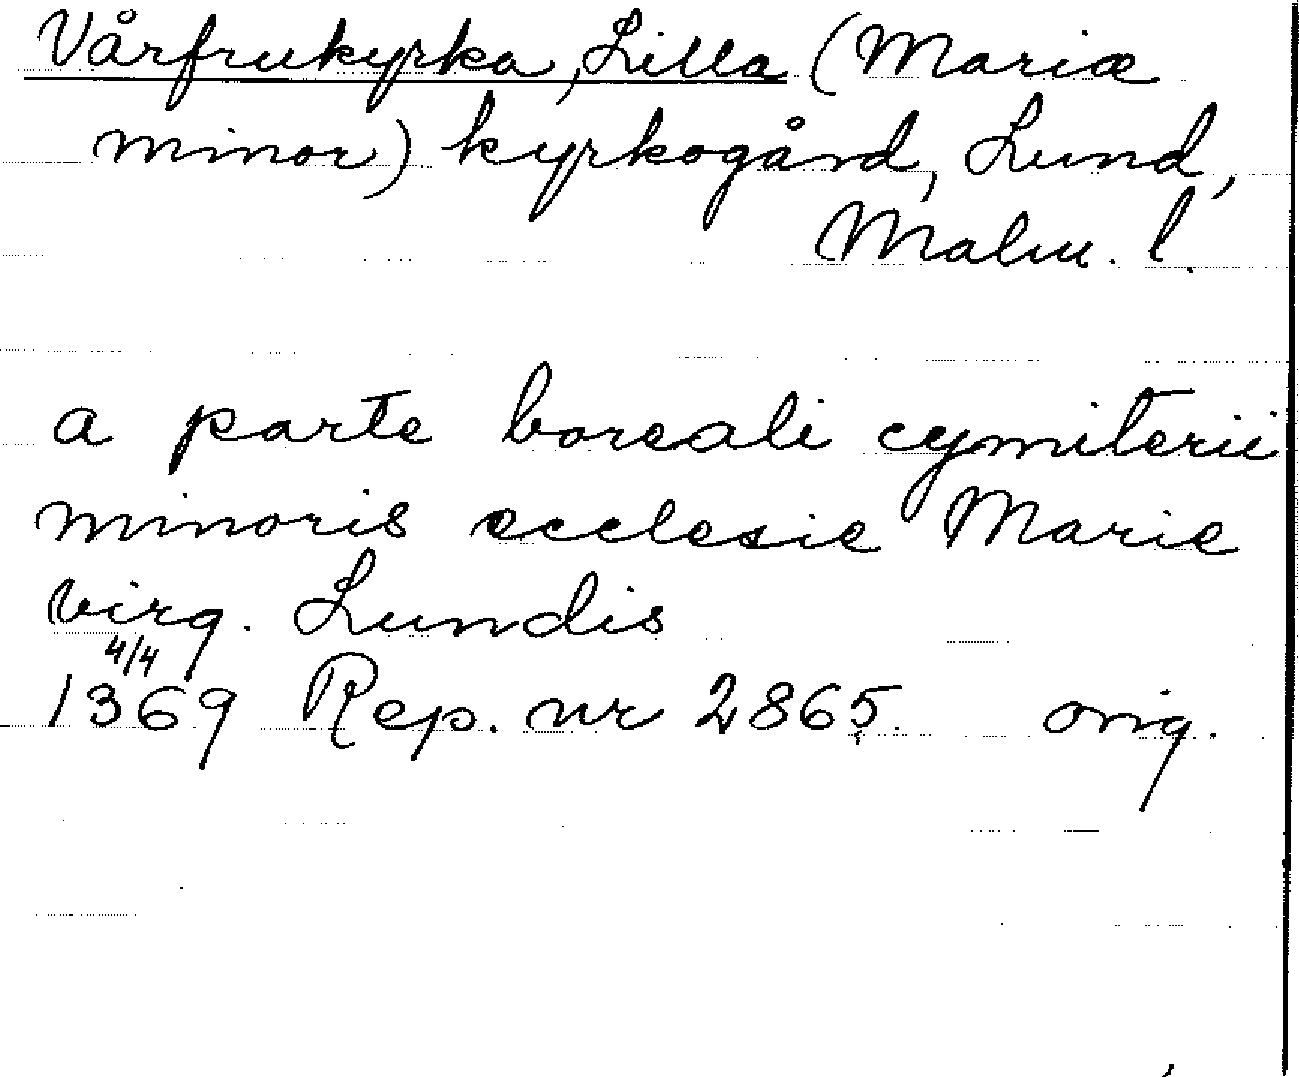 Vårfrukyrka, Lilla (Mariæ
minor) kyrkogård, Lund,
Malm. l.
a parte boreali cymiterii
minoris ecclesie Marie
virg. Lundis
4/4
1369 Rep. nr 2865. orig.